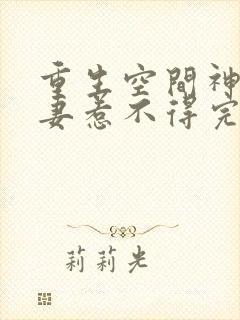 重生空間神
妻惹不得完
莉莉光